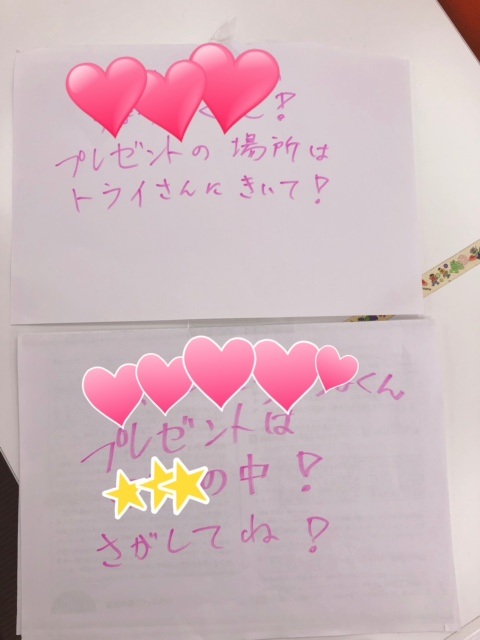 くん!
プレゼントの場所は
トライさんにきいて!
くん
プレゼントは
の中!
さがしてね!